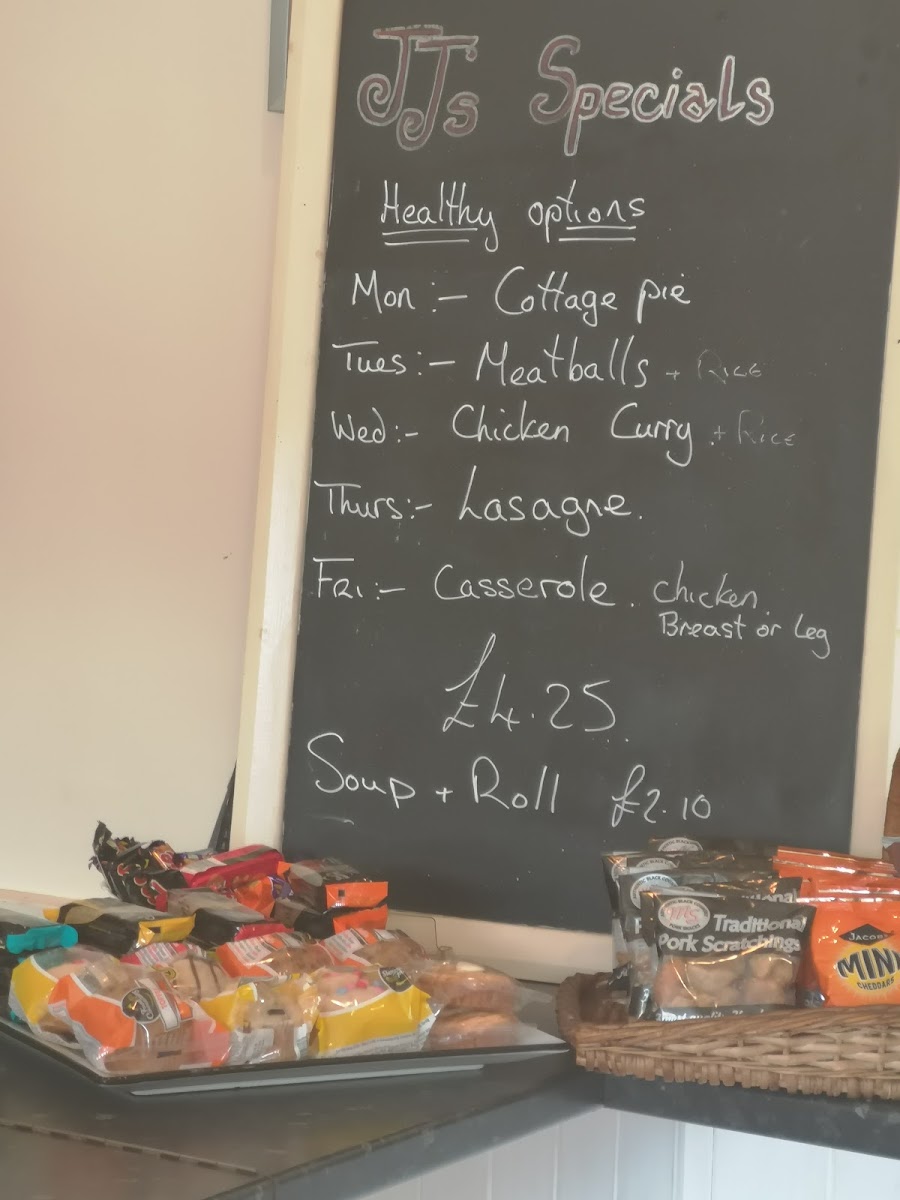 JJs Specials
Healthy options
Mon :- Cottage pie
Tues :- Meatballs + RICE
Wed :- Chicken Curry + RICE
Thurs :- Lasagne.
FRI :- Casserole. chicken
Breast or Leg
£4.25
Soup + Roll £2.10
Traditional
Pork Scratchings
JACOB'S
MINI
CHEDDARS